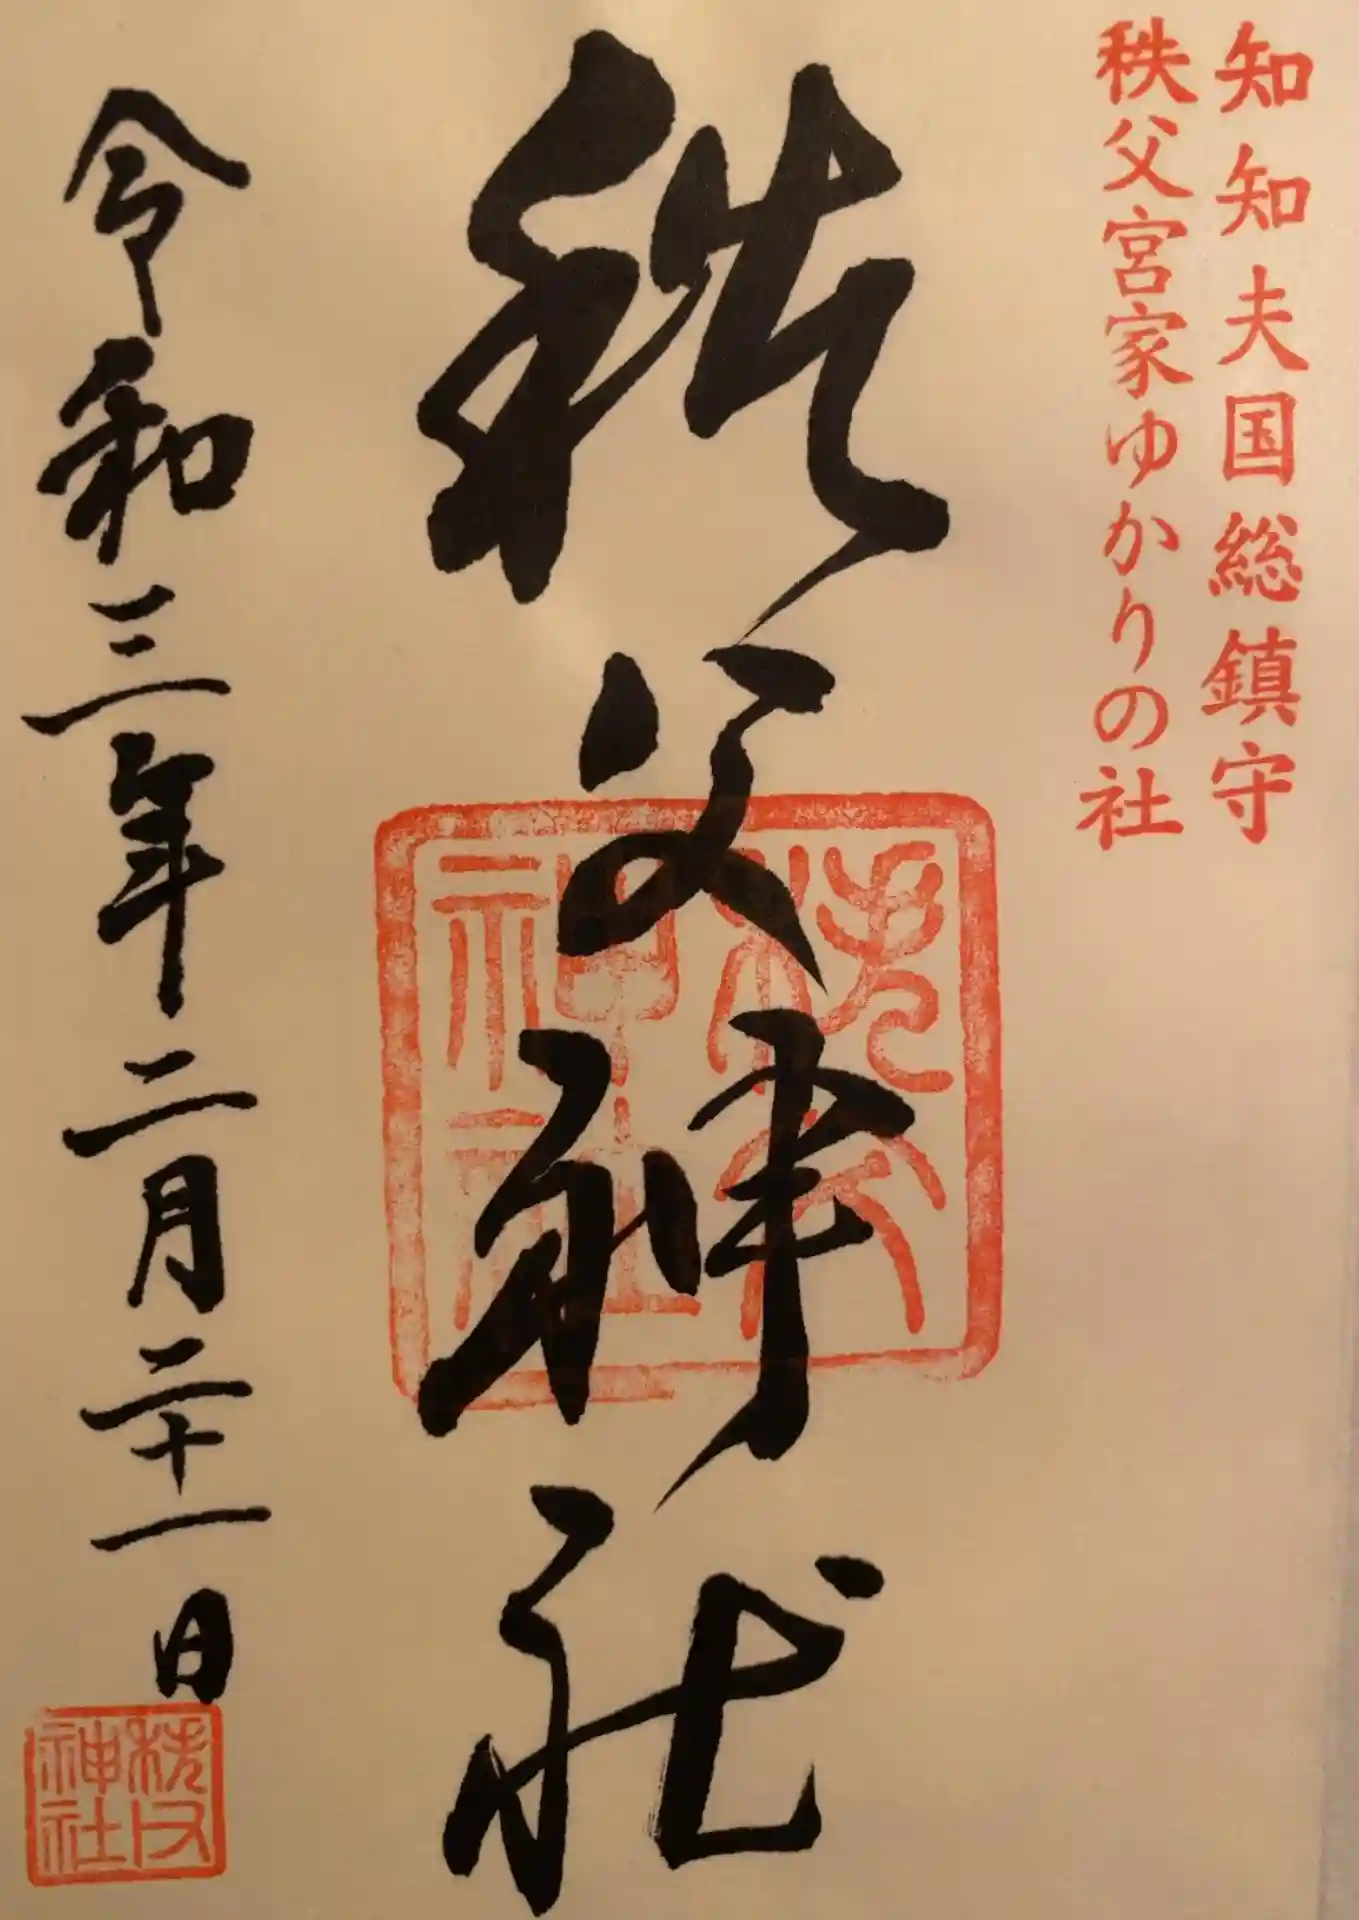 知知夫国総鎮守
秩父宮家ゆかりの社
秩父神社
秩父神社
令和三年二月二十一日
秩父神社